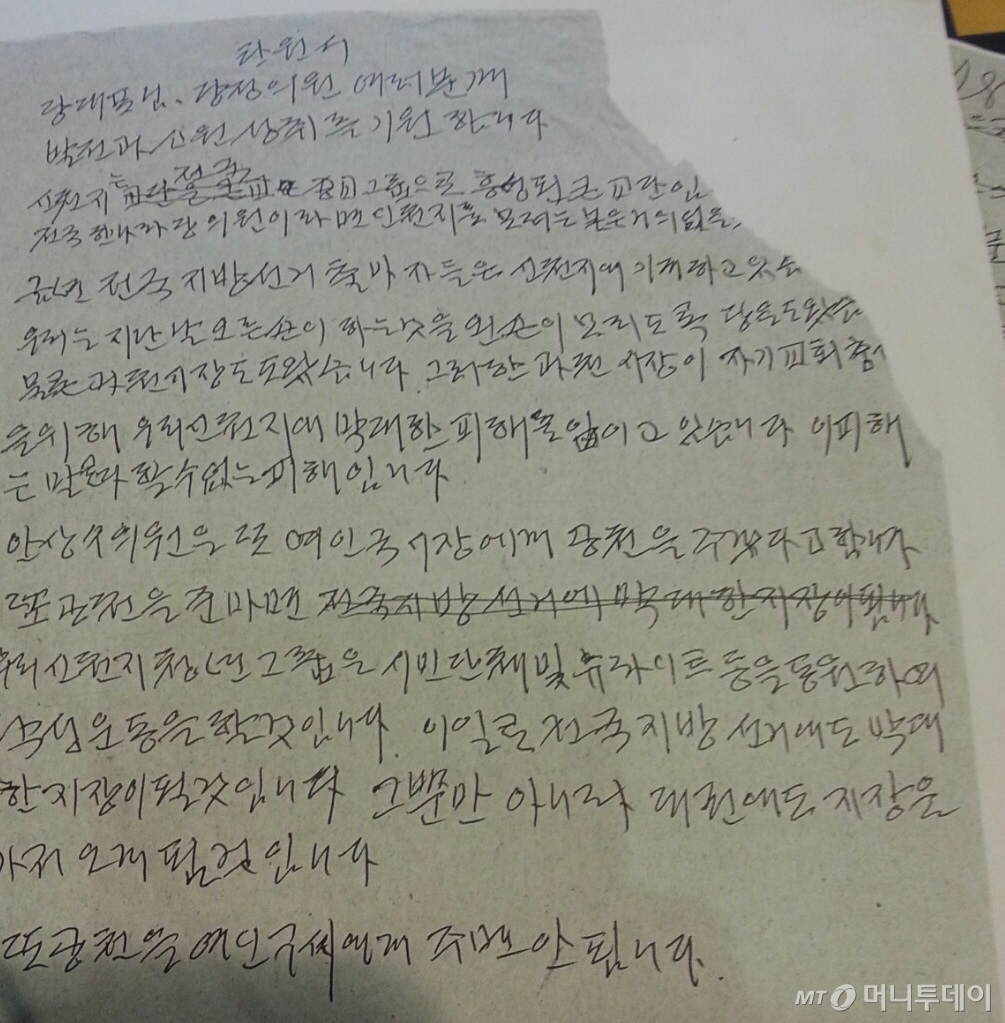 탄원서
당대표님, 당정의원 여러분께
발전과 소원성취를 기원합니다
신천지는 교단 전국 종교그룹으로 형성된 큰 교단임
전국 한나라당 의원이라면 신천지를 모려는 분은 거의 없음.
금년 전국 지방선거 출마자들은 신천지에 기대하고 있습
우리는 지난날 오른손이 하는것을 왼손이 모리도록 당을 도왔습
물론 과천시장도 도왔습니다. 그러한 과천시장이 자기교회
을위해 우리신천지에 막대한 피해를 입이고 있습니다 이피해
는 말로다 할수없는 피해입니다.
안상수의원은 또 여인국 시장에게 공천을 주겠다고 합니다
또 공천을 준다면 전국지방선거에 막대한 지장이됩니다
우리 신천지 청년그룹은 시민단체 및 뉴라이트 등을 동원하여
낙선운동을 할것입니다. 이일로 전국지방 선거에도 막대
한 지장이 될것입니다 그뿐만 아니라 대전에도 지장을
가저 오게 될것입니다
또 공천을 여인국씨에게 주면 안 됩니다.
MT 머니투데이